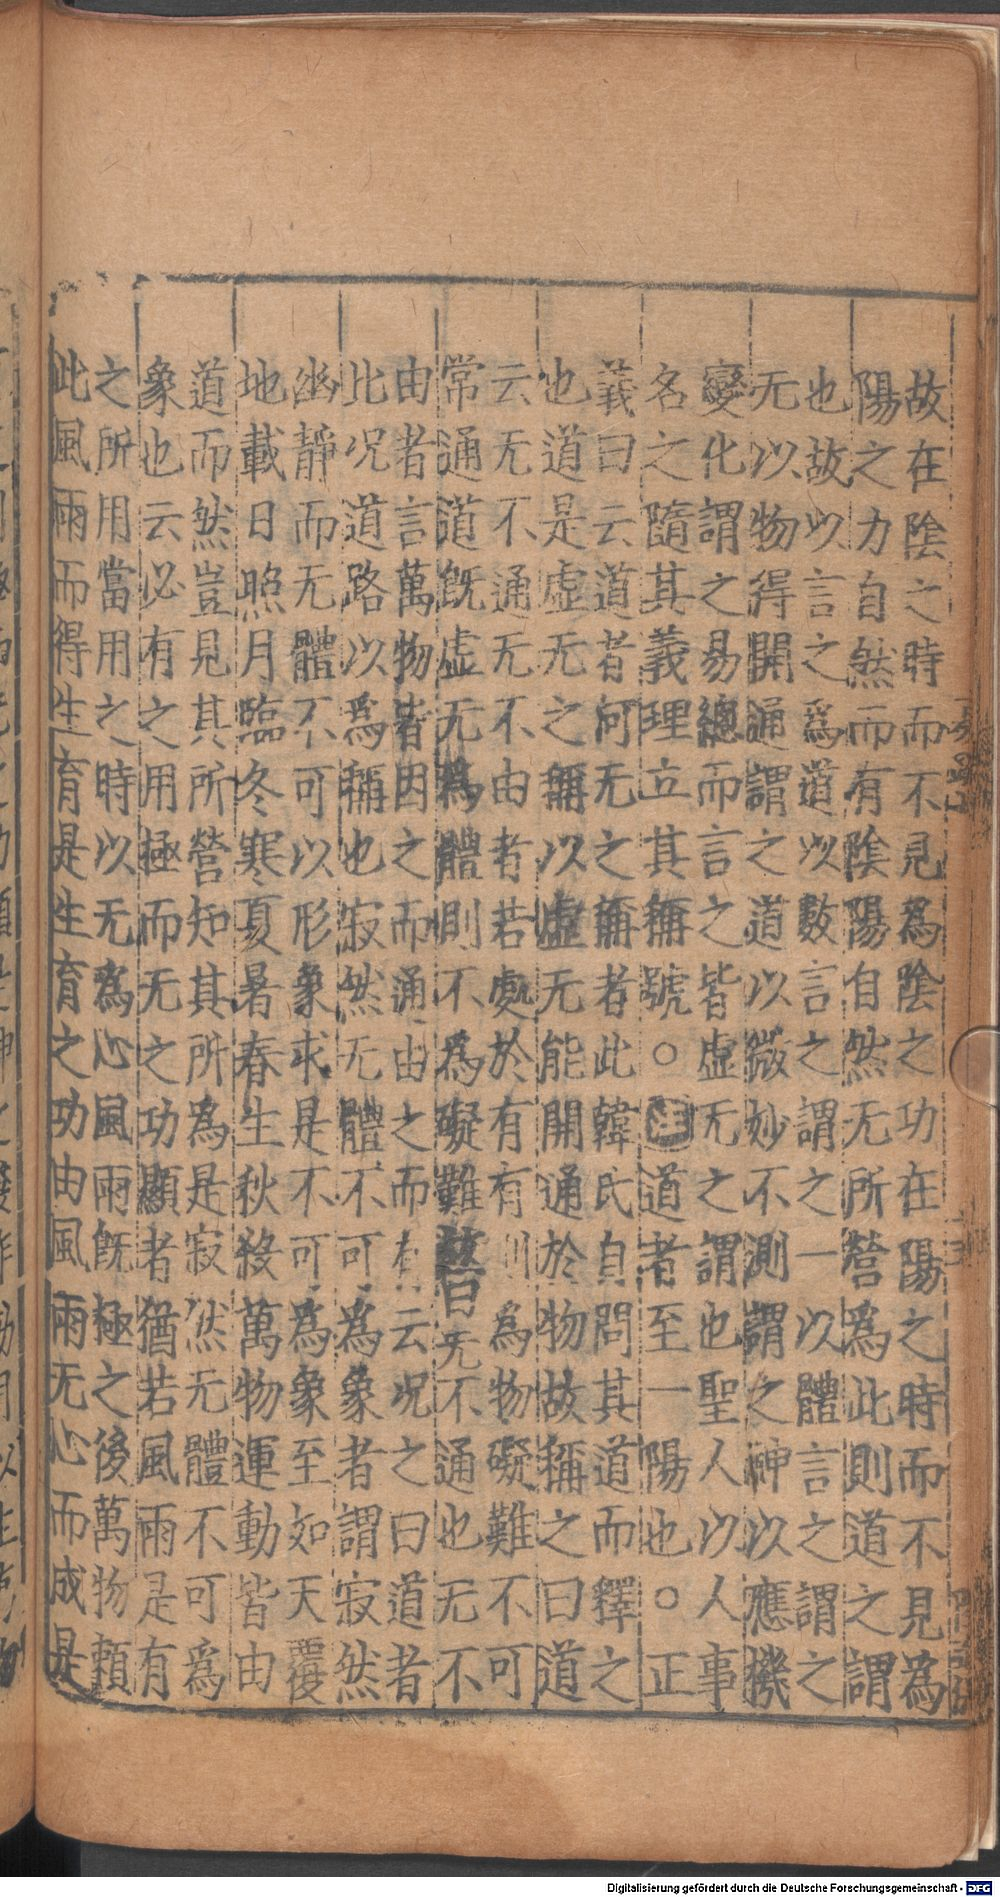 故在陰之時而不見為陰之功在陽之時而不見為
陽之力自然而有陰陽自然无所營為此則道之謂
也故以言之為道以數言之謂之一以體言之謂之
无以物得開通謂之道以微妙不測謂之神以應機
變化謂之易總而言之皆虛无之謂也聖人以人事
名之隨其義理立其稱號○注道者至一陽也○正
義曰云道者何无之稱者此韓氏自問其道而釋之
也道是虛无之稱以虛无能開通於物故稱之曰道
云无不通无不由者若處於有有則為物礙難不可
常通道既虛无為體則不為礙難皆无不通也无不
由者言萬物皆因之而通由之而有云况之曰道者
比况道路以為稱也寂然无體不可為象者謂寂然
幽靜而无體不可以形象求是不可為象至如天覆
地載日照月臨冬寒夏暑春生秋殺萬物運動皆由
道而然豈見其所營知其所為是寂然无體不可為
象也云必有之用極而无之功顯者猶若風雨是有
之所用當用之時以无為心風雨既極之後萬物賴
此風雨而得生育是生育之功由風雨无心而成是
Digitalisierung gefördert durch die Deutsche Forschungsgemeinschaft - DFG